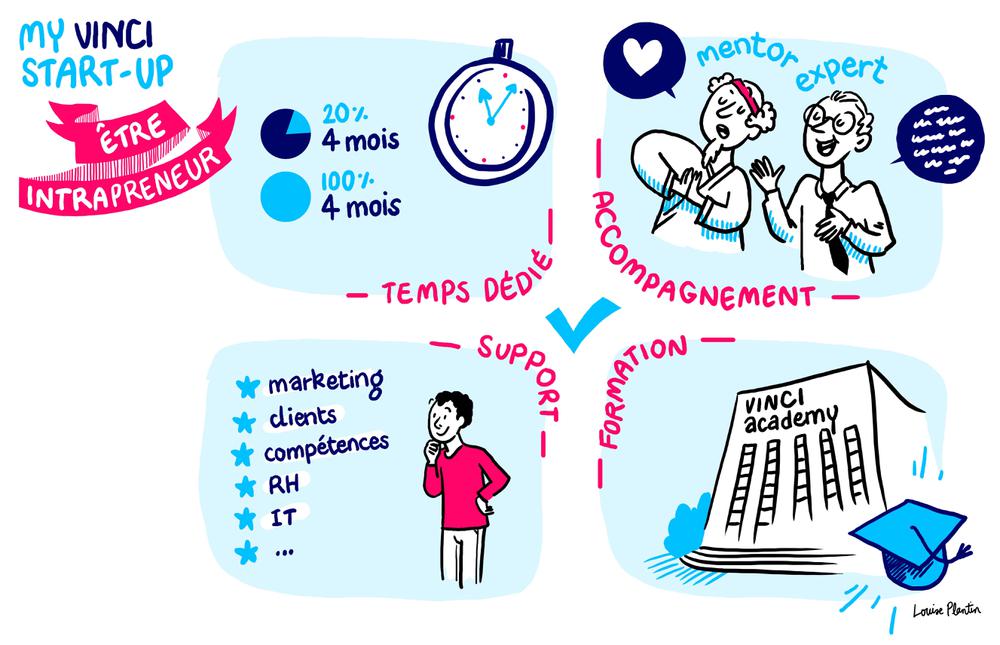 MY VINCI
START-UP
ÊTRE
INTRAPRENEUR
20%
4 mois
100%
4 mois
TEMPS DÉDIÉ
mentor
expert
ACCOMPAGNEMENT
SUPPORT
marketing
clients
compétences
RH
IT
...
FORMATION
VINCI
academy
Louise Plantin